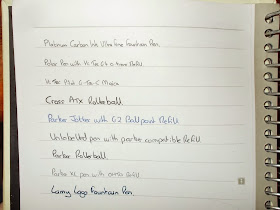 Platinum Carbon Ink Ultra Fine Fountain Pen.
Poker Pen with Hi Tec C4 0.4mm Refill
Hi Tec C Maica
Cross ATX Rollerball.
Parker Jotter with G2 Ballpoint Refill
Unlabelled pen with parker compatible Refill
Parker Rollerball.
Parker XL pen with Refill
Lamy Logo Fountain Pen.